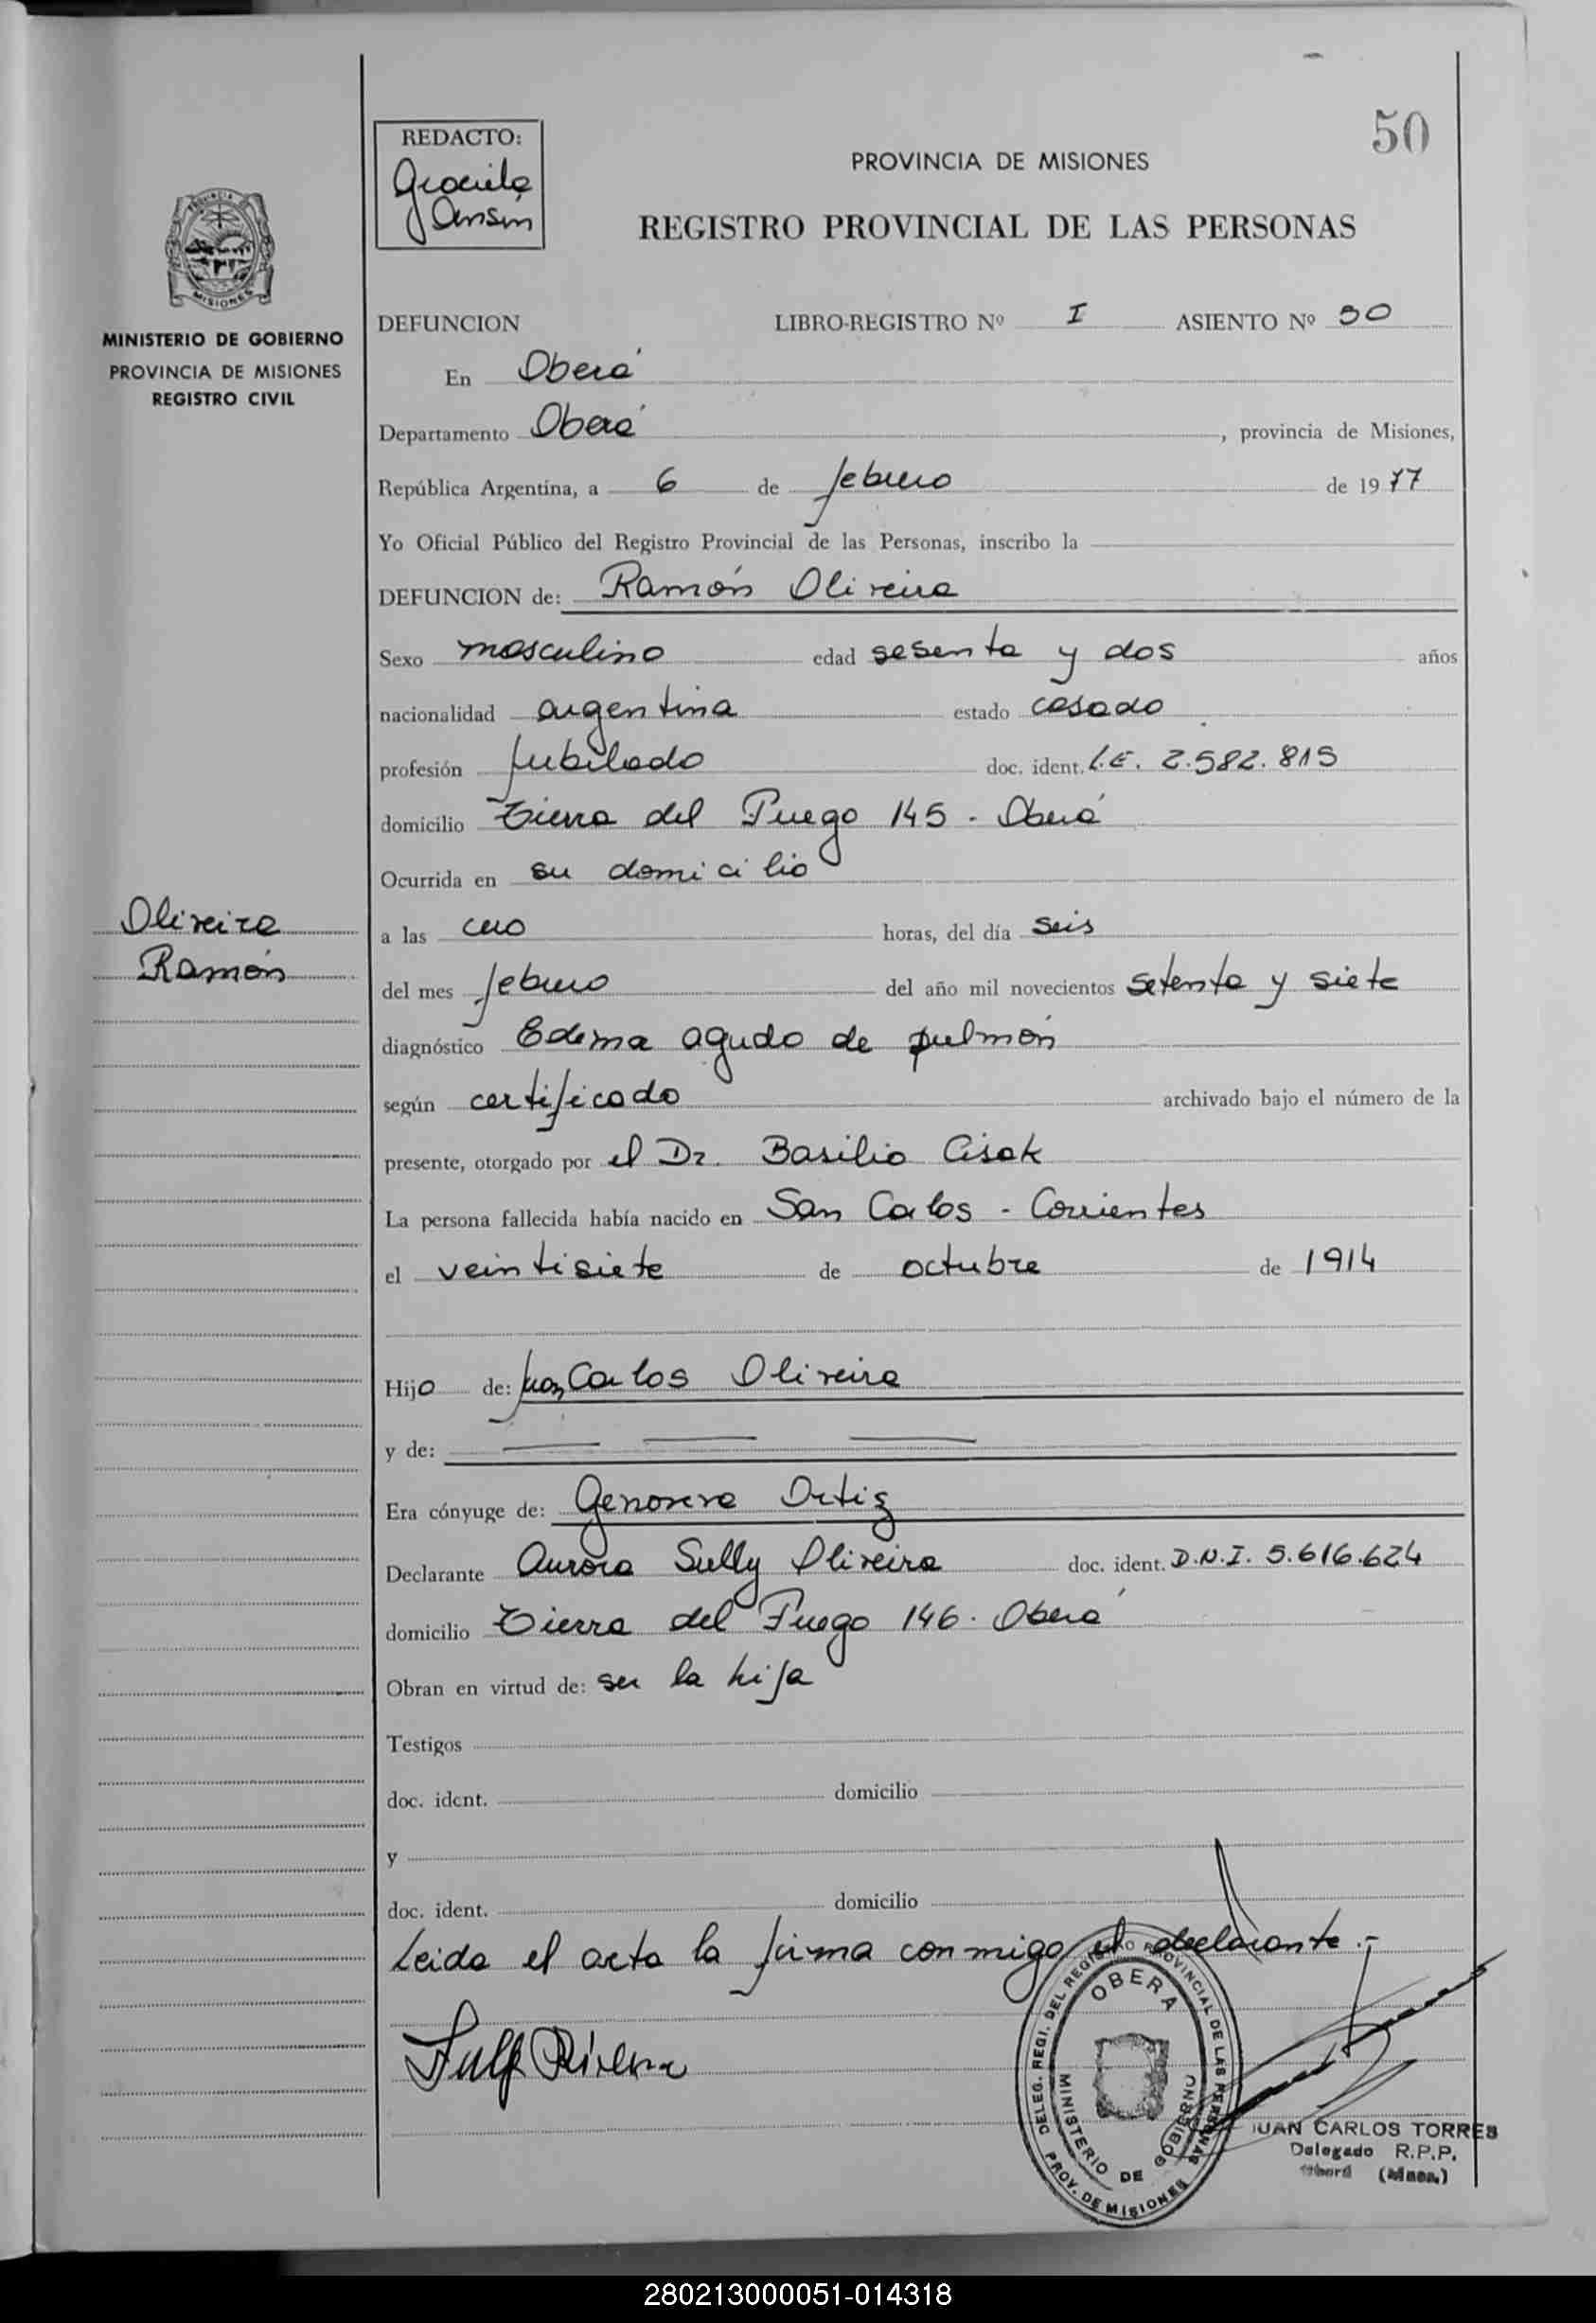 50
REDACTO:
Graciela
Ansín
PROVINCIA DE MISIONES
REGISTRO PROVINCIAL DE LAS PERSONAS
MINISTERIO DE GOBIERNO
PROVINCIA DE MISIONES
REGISTRO CIVIL
DEFUNCION LIBRO-REGISTRO Nº I ASIENTO Nº 50
En Oberá
Departamento Oberá, provincia de Misiones,
República Argentina, a 6 de febrero de 1977
Yo Oficial Público del Registro Provincial de las Personas, inscribo la
DEFUNCION de: Ramón Oliveira
Sexo masculino edad sesenta y dos años
nacionalidad argentina estado casado
profesión jubilado doc. ident. L.E. 2.582.815
domicilio Tierra del Fuego 145 - Oberá
Ocurrida en su domicilio
Oliveira
Ramón
a las cero horas, del día seis
del mes febrero del año mil novecientos setenta y siete
diagnóstico Edema agudo de pulmón
según certificado archivado bajo el número de la
presente, otorgado por el Dr. Basilio Cisak
La persona fallecida había nacido en San Carlos - Corrientes
el veintisiete de octubre de 1914
Hijo de: Juan Carlos Oliveira
y de:
Era cónyuge de: Genoveva Ortiz
Declarante Aurora Sully Oliveira doc. ident. D.N.I. 5.616.624
domicilio Tierra del Fuego 146. Oberá
Obran en virtud de: ser la hija
Testigos
doc. ident. domicilio
y
doc. ident. domicilio
Leida el acta la firma conmigo el declarante.-
DELEG. REGI. DEL REGISTRO PROVINCIAL DE LAS PERSONAS
OBERA
MINISTERIO DE GOBIERNO
PROV. DE MISIONES
JUAN CARLOS TORRES
Delegado R.P.P.
Oberá (Mnes.)
280213000051-014318